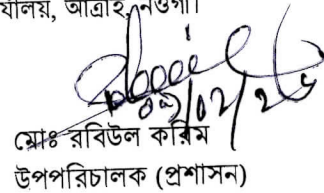 র্যালয়, আত্রাই, নওগাঁ।
মোঃ রবিউল করিম
উপপরিচালক (প্রশাসন)